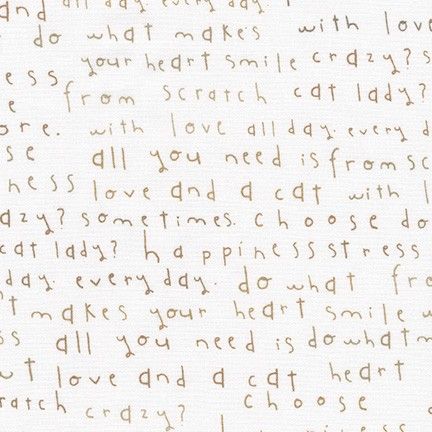 and all day every day. I
do what makes with love
your heart smile crazy? s
ess
e from scratch cat lady?
ore. with love all day. every d
se all you need is from sc
ness love and a cat with l
azy? sometimes. choose do
cat lady? happinessstress
day. every day. do what fro
't makes your heart smile w
ss all you need is dowhatm
ut love and a cat heart
ratch crazy? choose
happiness